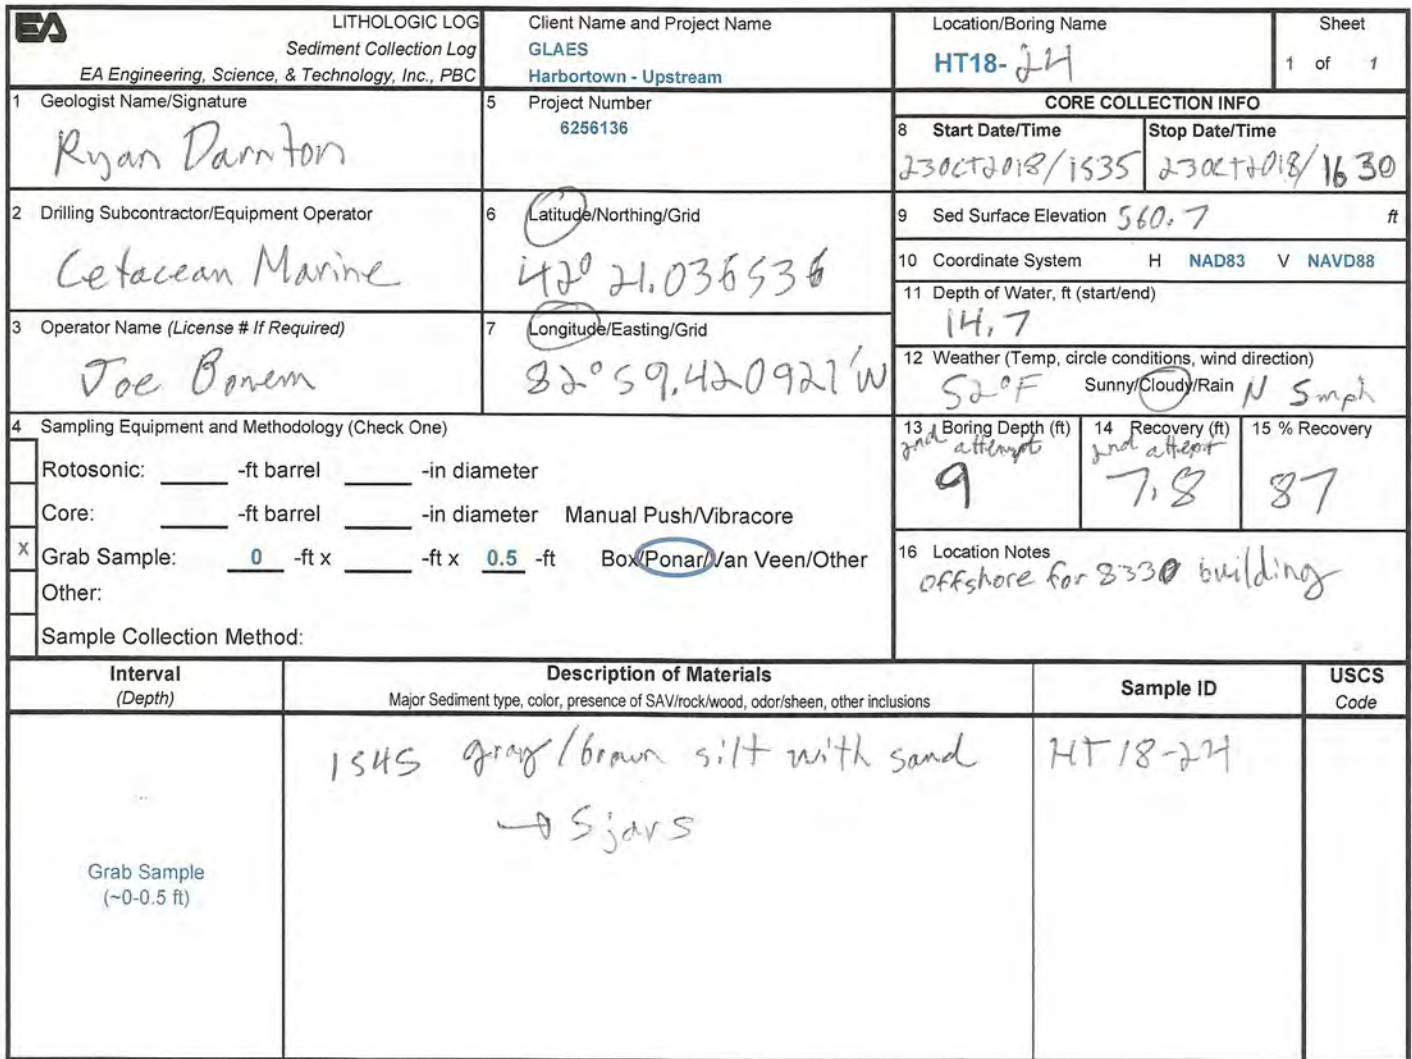 EA
LITHOLOGIC LOG
Sediment Collection Log
EA Engineering, Science, & Technology, Inc., PBC
Client Name and Project Name
GLAES
Harbortown - Upstream
Location/Boring Name
HT18-24
Sheet
1 of 1
1 Geologist Name/Signature
Ryan Darnton
5 Project Number
6256136
CORE COLLECTION INFO
8 Start Date/Time
23OCT2018/1535
Stop Date/Time
23OCT2018/1630
2 Drilling Subcontractor/Equipment Operator
Cetacean Marine
6 Latitude/Northing/Grid
42° 21.036536
9 Sed Surface Elevation 560.7 ft
10 Coordinate System H NAD83 V NAVD88
11 Depth of Water, ft (start/end)
14.7
3 Operator Name (License # If Required)
Joe Bonem
7 Longitude/Easting/Grid
82° 59.420921'W
12 Weather (Temp, circle conditions, wind direction)
52°F Sunny/Cloudy/Rain N 5mph
4 Sampling Equipment and Methodology (Check One)
Rotosonic: ____ -ft barrel ____ -in diameter
Core: ____ -ft barrel ____ -in diameter Manual Push/Vibracore
X Grab Sample: 0 -ft x ____ -ft x 0.5 -ft Box/Ponar/Van Veen/Other
Other:
Sample Collection Method:
13 Boring Depth (ft)
2nd attempt
9
14 Recovery (ft)
2nd attempt
7.8
15 % Recovery
87
16 Location Notes
offshore for 8330 building
Interval
(Depth)
Description of Materials
Major Sediment type, color, presence of SAV/rock/wood, odor/sheen, other inclusions
Sample ID
USCS
Code
Grab Sample
(~0-0.5 ft)
1545 gray/brown silt with sand
→ 5 jars
HT18-24